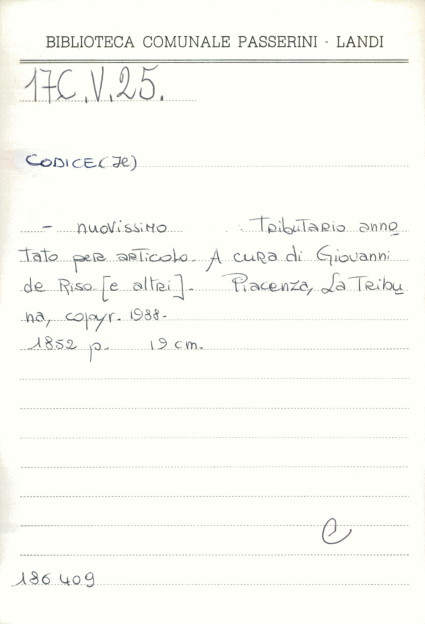 BIBLIOTECA COMUNALE PASSERINI - LANDI
17C.V.25.
CODICE(Je)
- nuovissimo Tributario anno
tato per articolo. A cura di Giovanni
de Riso [e altri]. Piacenza, La Tribu
na, copyr. 1988.
1852 p. 19 cm.
C
186409